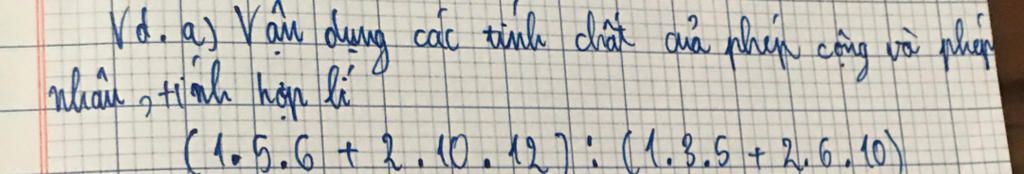 Vd. a) Vận dụng các tính chất của phép cộng và phép
nhân, tính hợp lí
(1.5.6 + 2.10.12) : (1.3.5 + 2.6.10)